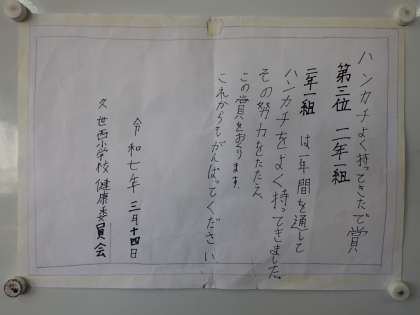 ハンカチよく持ってきたで賞
第三位 二年一組
二年一組は一年間を通して
ハンカチをよく持ってきました。
その努力をたたえ、
この賞をおくります。
これからもがんばってください
令和七年 三月十四日
久世西小学校 健康委員会